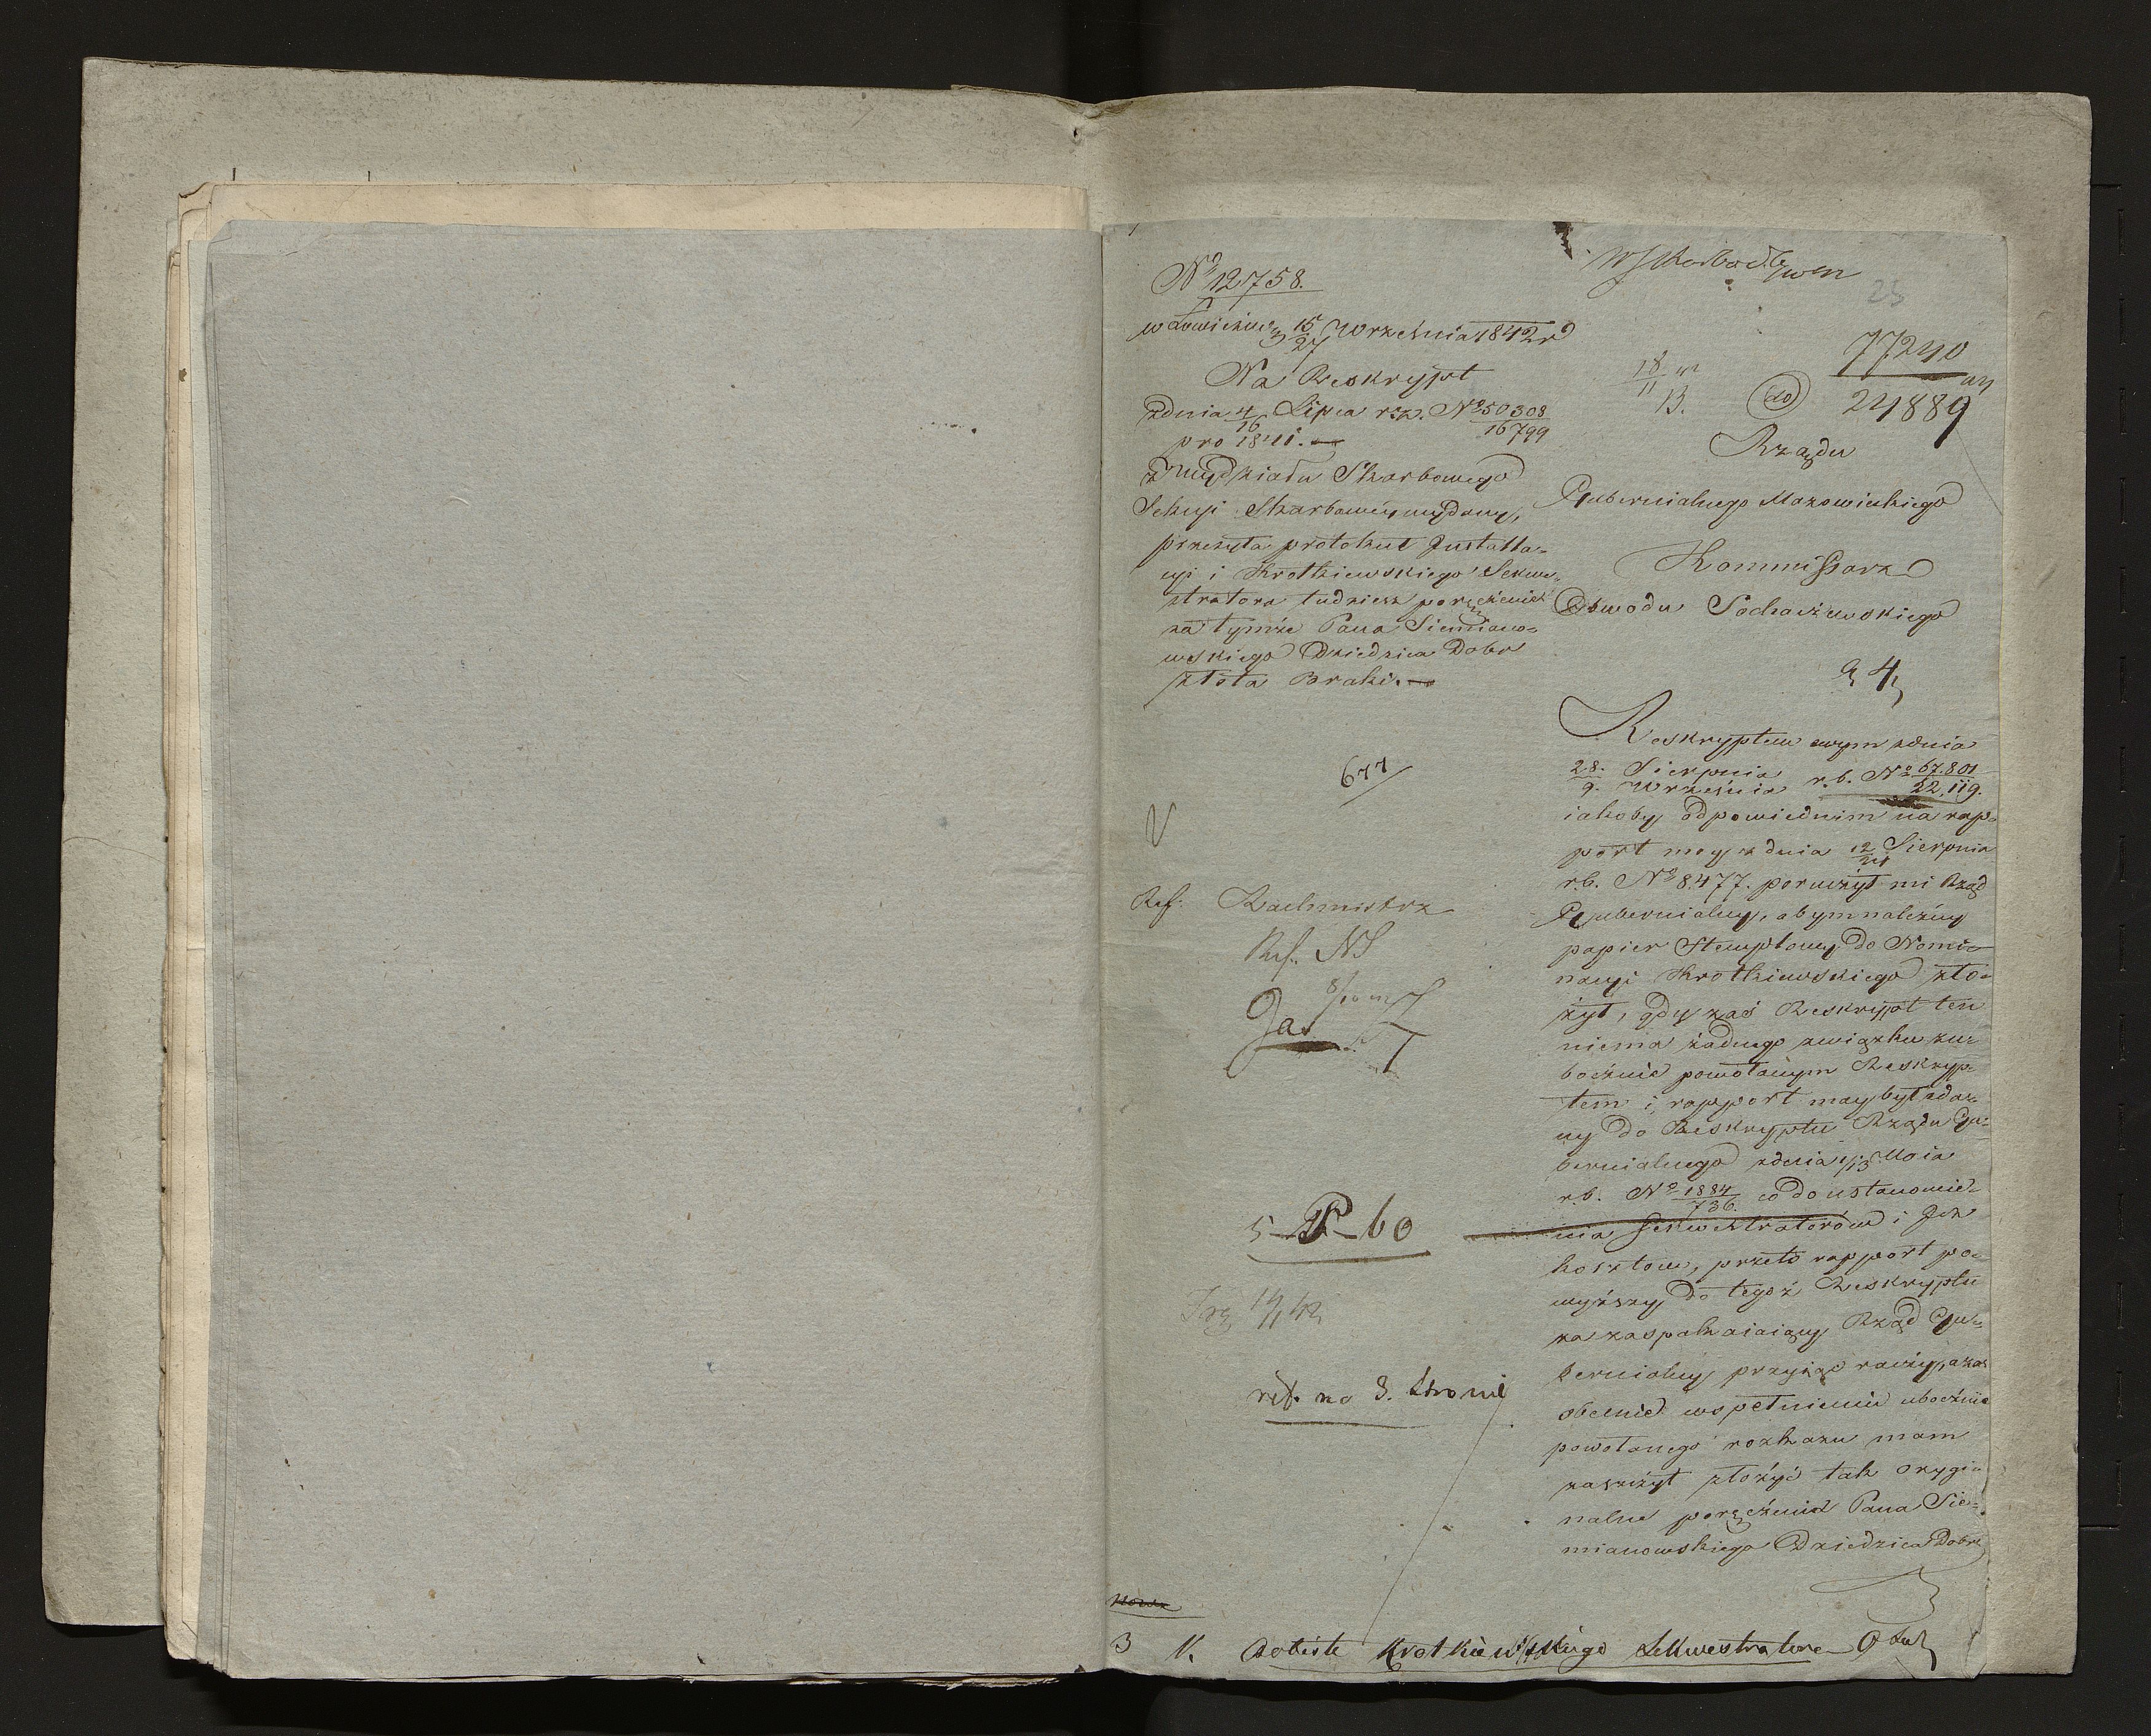 No 12758.
w Łowiczu d. 15/27 Września 1842 r
Na Reskrypt
z dnia 4/16 Lipca r.z. No 50308/16799
pro 1841. —
z Wydziału Skarbowego
Sekcyi Skarbowey wydany,
przesyła protokuł Installa-
cyi i Krotkiewskiego Sekwe-
stratora tudzież poręczenie
za tymże Pana Siemiano-
wskiego Dziedzica Dobr
złota Braki. —
677
Ref. Rachmistrz
Ref. NS
5-P-60
ref. na 3. stronie
25
77240
24889
18/11
B.
do
Rządu
Gubernialnego Mazowieckiego
Kommissarz
Obwodu Sochaczewskiego
4
Reskryptem swym z dnia
28. Sierpnia/9. Września r.b. No 67.801/22,119.
iakoby odpowiednim na rap-
port moy z dnia 12/24 Sierpnia
r.b. No 8477. poruczył mi Rząd
Gubernialny, abym należny
papier stemplowy do Nomi-
nacyi Krotkiewskiego zło-
żył, gdy zaś Reskrypt ten
niema żadnego związku zu-
bocznie powołanym Reskryp-
tem i rapport moy był zda-
ny do Reskryptu Rządu Gu-
bernialnego z dnia 1/13 Maia
r.b. No 1884/736. co do ustanowie-
nia Sekwestratorów i Ich
kosztow, przeto rapport po-
wyższy do tegoż Reskryptu
za zaspakaiaiący Rząd Gu-
bernialny przyiąć raczy, a zaś
obecnie w spełnieniu ubocznie
powołanego rozkazu mam
zaszczyt złożyć tak orygi-
nalne poręczenie Pana Sie-
mianowskiego Dziedzica Dobr
3 V. Krotkiewskiego Sekwestratora